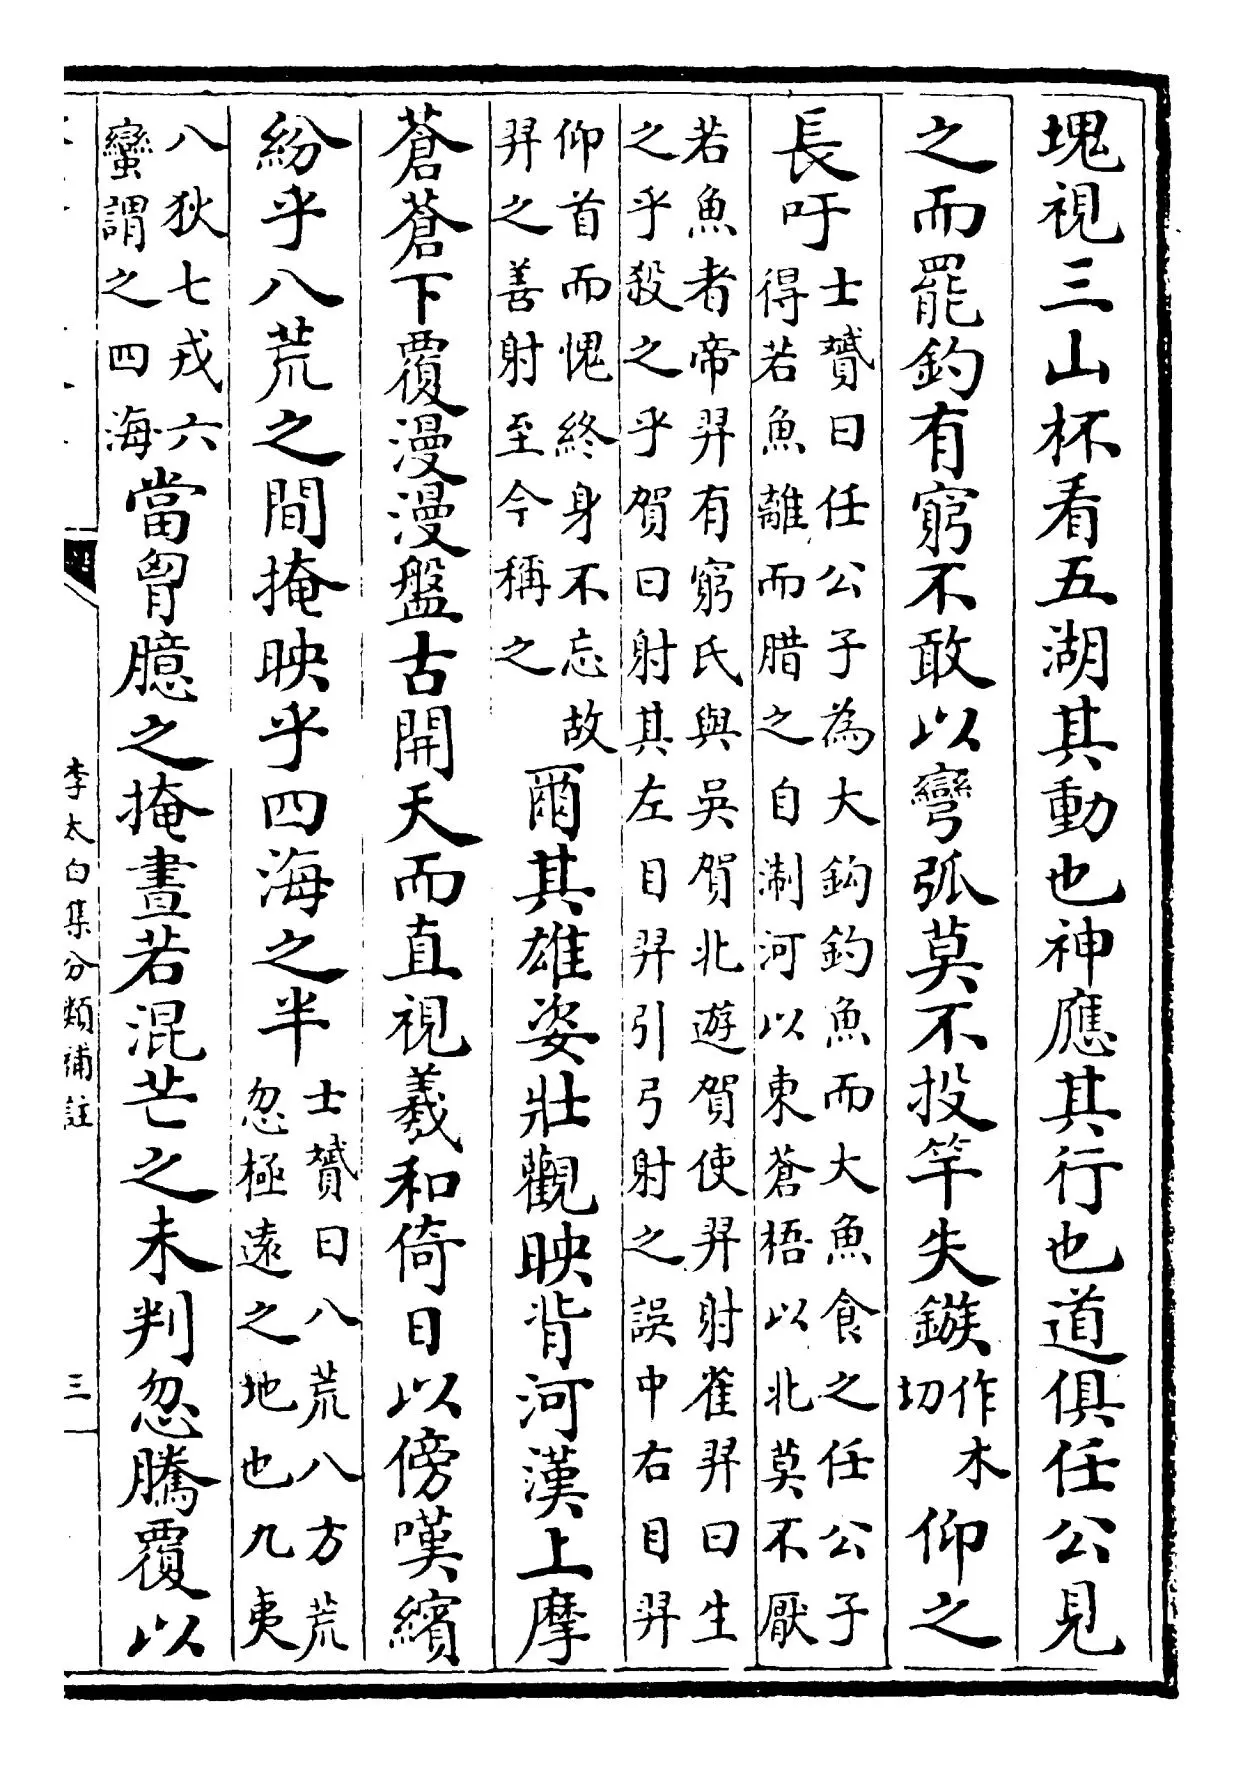 塊視三山杯看五湖其動也神應其行也道俱任公見
之而罷釣有窮不敢以彎弧莫不投竿失鏃作木切仰之
長吁士贇曰任公子為大鈎釣魚而大魚食之任公子得若魚離而腊之自淛河以東蒼梧以北莫不厭
若魚者帝羿有窮氏與吳賀北遊賀使羿射雀羿曰生之乎殺之乎賀曰射其左目羿引弓射之誤中右目羿
仰首而愧終身不忘故羿之善射至今稱之爾其雄姿壯觀映背河漢上摩
蒼蒼下覆漫漫盤古開天而直視羲和倚日以傍嘆繽
紛乎八荒之間掩映乎四海之半士贇曰八荒八方荒忽極遠之地也九夷
八狄七戎六蠻謂之四海當胷臆之掩晝若混芒之未判忽騰覆以
李太白集分類補註
三一